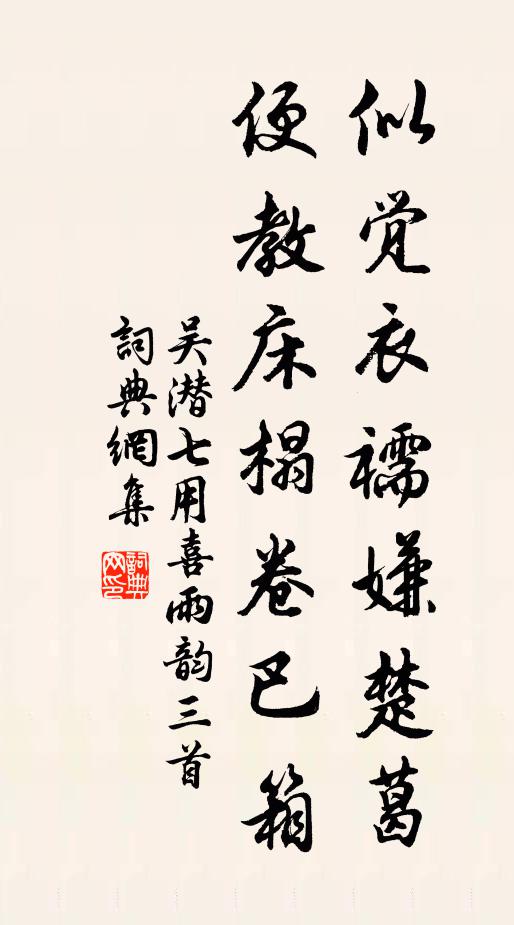 似觉衣襦嫌楚葛
便教床榻卷巴箱
吴潜七用喜雨韵三首
詞典網集
詞典网印